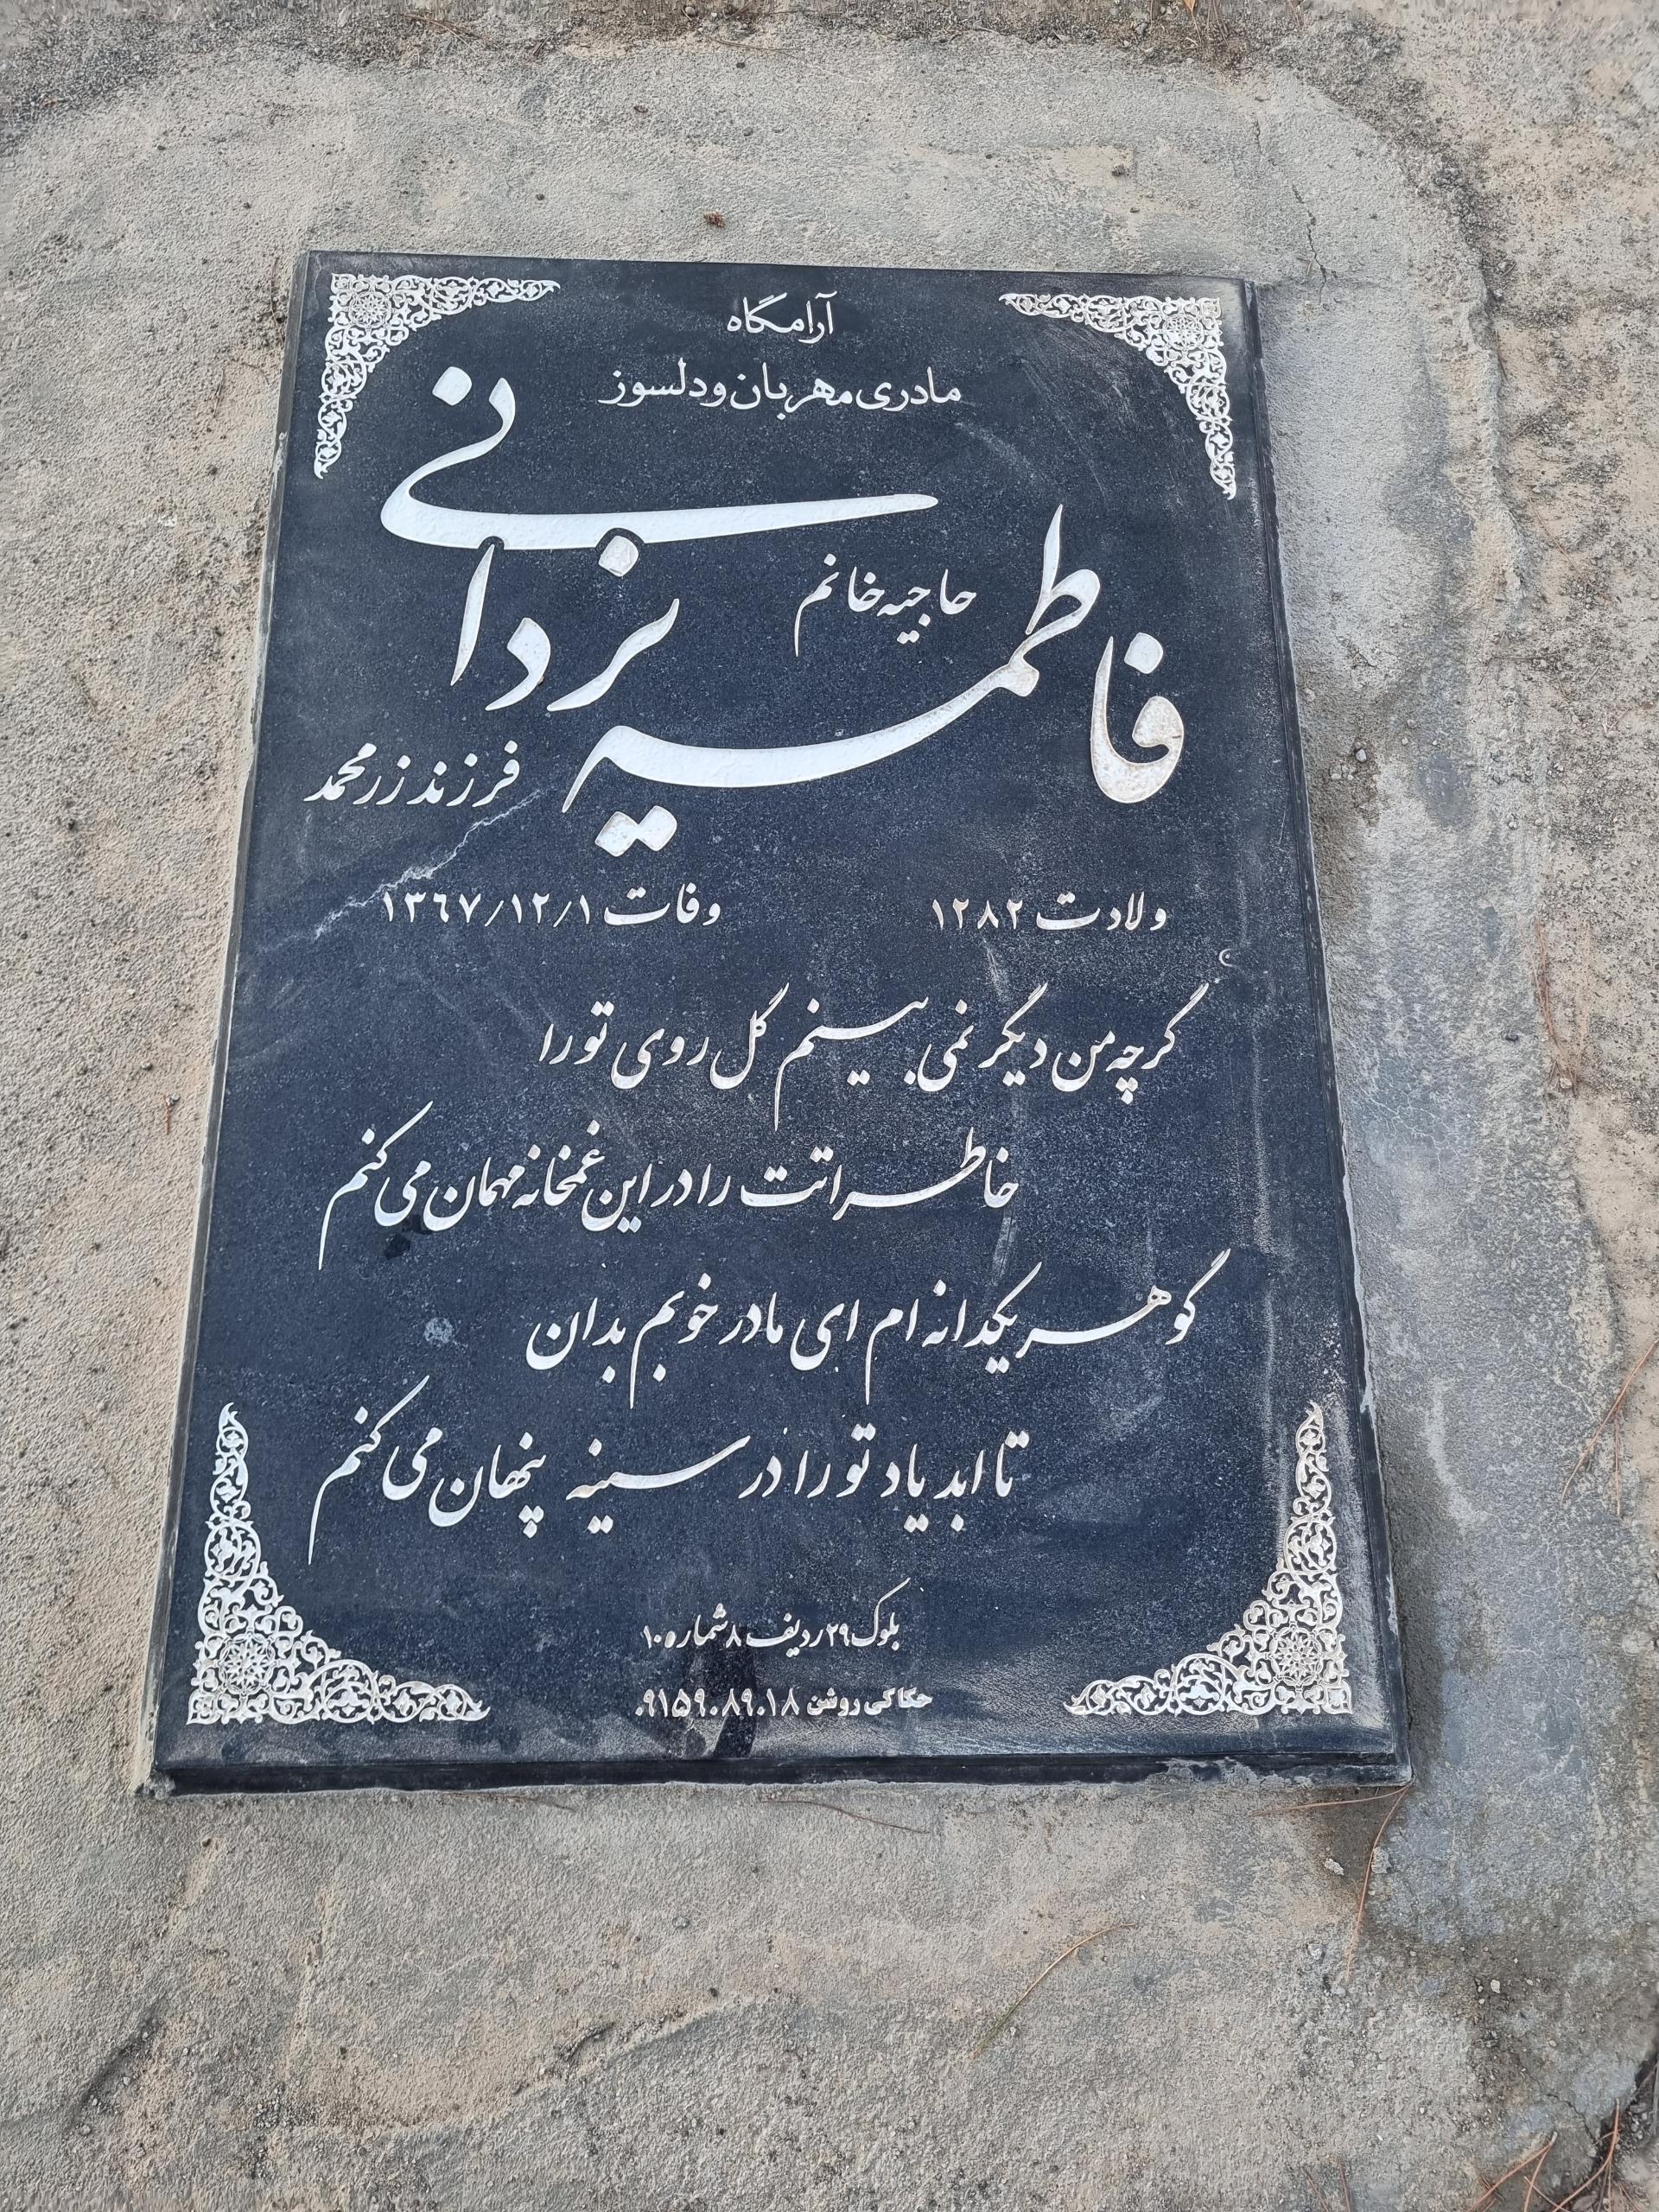 آرامگاه
مادری مهربان و دلسوز
حاجیه خانم
فاطمه یزدانی
فرزند زرمحمد
ولادت ۱۲۸۲
وفات ۱۳۶۷/۱۲/۱
گرچه من دیگر نمی بینم گل روی تو را
خاطراتت را در این غمخانه مهمان می کنم
گوهر یکدانه ام ای مادر خوبم بدان
تا ابد یاد تو را در سینه پنهان می کنم
بلوک ۲۹ ردیف ۸ شماره ۱۰
حکاکی روشن ۰۹۱۵۹۰۸۹۰۱۸